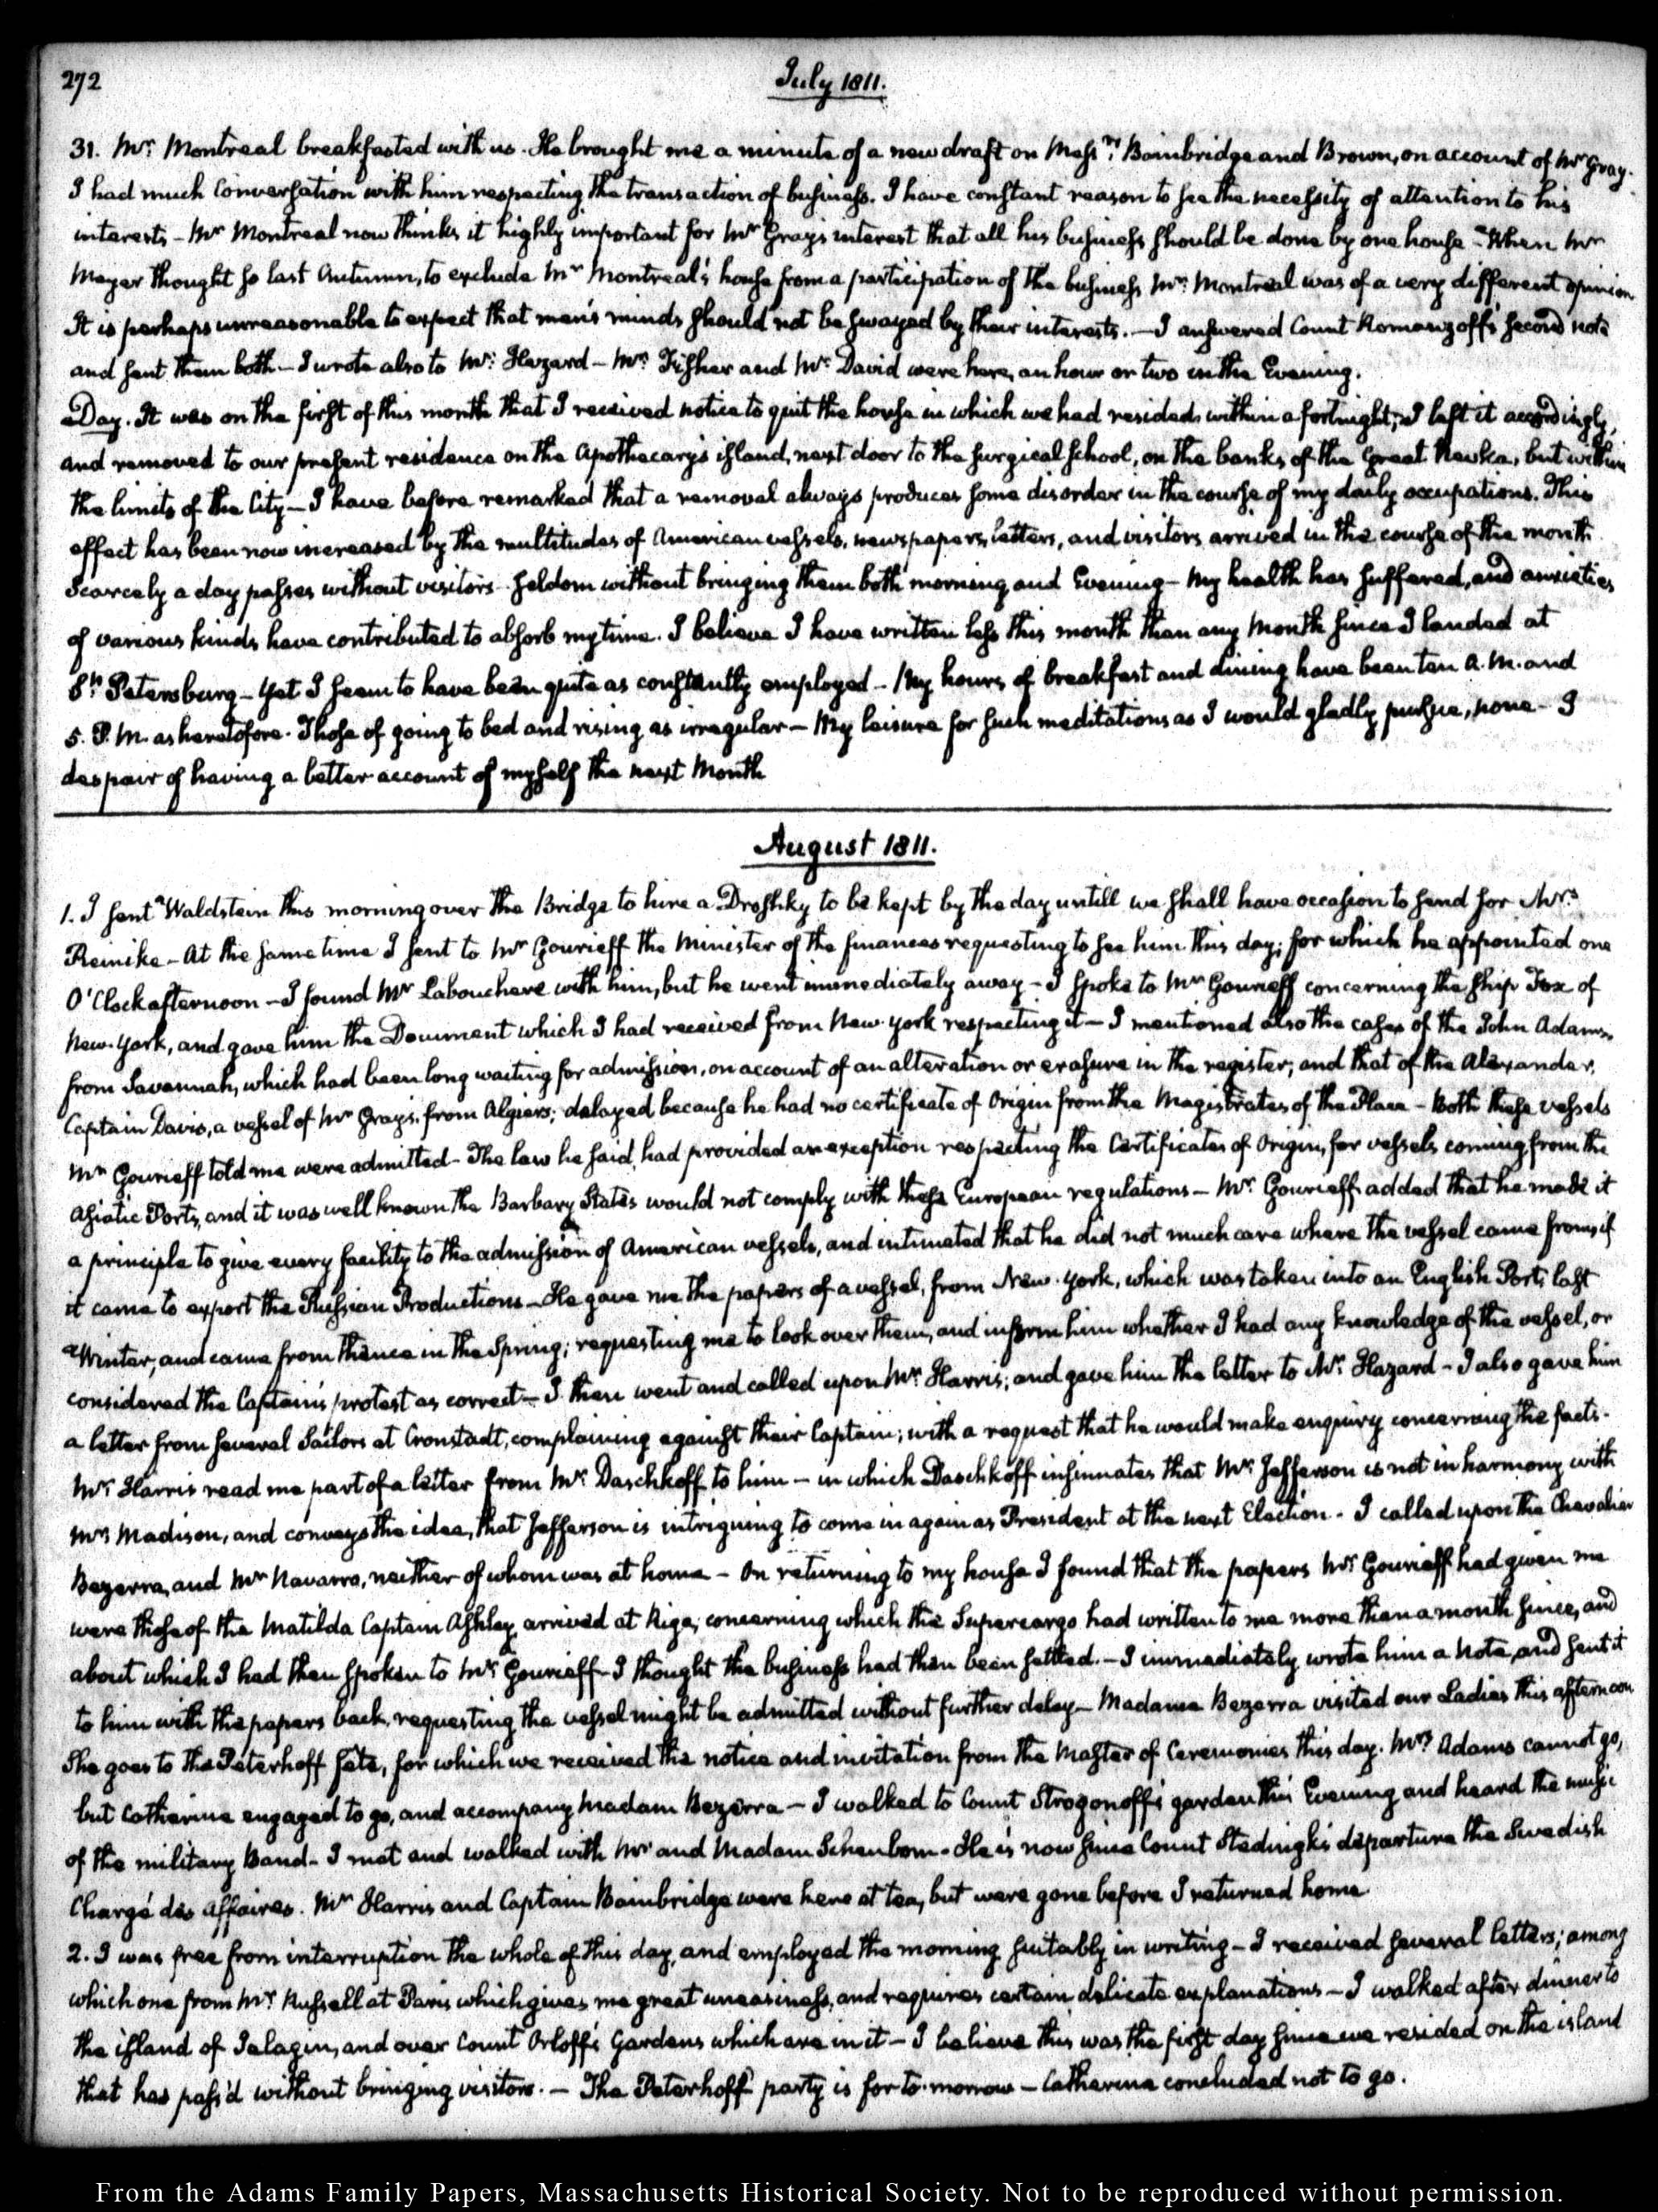 272
July 1811.
31. Mr. Montreal breakfasted with us. He brought me a minute of a new draft on Messrs. Bainbridge and Brown, on account of Mr Gray.
I had much Conversation with him respecting the transaction of business. I have constant reason to see the necessity of attention to his
interests - Mr Montreal now thinks it highly important for Mr Gray's interest that all his business should be done by one house - When Mr
Meyer thought so last Autumn, to exclude Mr Montreal's house from a participation of the business Mr Montreal was of a very different opinion
It is perhaps unreasonable to expect that men's minds should not be swayed by their interests. - I answered Count Romanzoff's second note
and sent them both - I wrote also to Mr: Hazard - Mr Fisher and Mr. David were here, an hour or two in the Evening.
Day. It was on the first of this month that I received notice to quit the house in which we had resided, within a fortnight; I left it accordingly,
and removed to our present residence on the Apothecary's island, next door to the surgical school, on the banks of the Great Newka, but within
the limits of the City - I have before remarked that a removal always produces some disorder in the course of my daily occupations. This
effect has been now increased by the multitudes of American vessels, newspapers, letters, and visitors arrived in the course of the month
Scarcely a day passes without visitors - seldom without bringing them both morning and Evening - My health has suffered, and anxieties
of various kinds have contributed to absorb my time. I believe I have written less this month than any Month since I landed at
St. Petersburg - Yet I seem to have been quite as constantly employed - My hours of breakfast and dining have been ten A.M. and
5. P.M. as heretofore. Those of going to bed and rising as irregular - My leisure for such meditations as I would gladly pursue, none - I
despair of having a better account of myself the next Month
August 1811.
1. I sent Waldstein this morning over the Bridge to hire a Droshky to be kept by the day untill we shall have occasion to send for Mrs.
Reinike - At the same time I sent to Mr Gourieff the Minister of the finances requesting to see him this day; for which he appointed one
O'Clock afternoon - I found Mr Labouchere with him, but he went immediately away - I spoke to Mr Gourieff concerning the ship Fox of
New-York, and gave him the Document which I had received from New-York respecting it - I mentioned also the cases of the John Adams,
from Savannah, which had been long waiting for admission, on account of an alteration or erasure in the register; and that of the Alexander,
Captain Davis, a vessel of Mr Gray's, from Algiers; delayed because he had no certificate of Origin from the Magistrates of the Place - Both these vessels
Mr Gourieff told me were admitted - The law he said, had provided an exception respecting the Certificates of Origin, for vessels coming from the
Asiatic Ports, and it was well known the Barbary States would not comply with these European regulations - Mr. Gourieff added that he made it
a principle to give every facility to the admission of American vessels, and intimated that he did not much care where the vessel came from, if
it came to export the Russian Productions - He gave me the papers of a vessel, from New-York, which was taken into an English Port, last
Winter, and came from thence in the Spring; requesting me to look over them, and inform him whether I had any knowledge of the vessel, or
considered the Captain's protest as correct - I then went and called upon Mr Harris; and gave him the letter to Mr. Hazard - I also gave him
a letter from several Sailors at Cronstadt, complaining against their Captain; with a request that he would make enquiry concerning the facts.
Mr Harris read me part of a letter from Mr. Daschkoff to him - in which Daschkoff insinuates that Mr. Jefferson is not in harmony with
Mr Madison, and conveys the idea, that Jefferson is intriguing to come in again as President at the next Election - I called upon the Chevalier
Bezerra, and Mr Navarro, neither of whom was at home - On returning to my house I found that the papers Mr. Gourieff had given me
were those of the Matilda Captain Ashley, arrived at Riga, concerning which the Supercargo had written to me more than a month since, and
about which I had then spoken to Mr. Gourieff - I thought the business had then been settled. - I immediately wrote him a Note, and sent it
to him with the papers back, requesting the vessel might be admitted without further delay - Madame Bezerra visited our Ladies this afternoon
She goes to the Peterhoff fête, for which we received the notice and invitation from the Master of Ceremonies this day. Mrs. Adams cannot go,
but Catherine engaged to go, and accompany Madam Bezerra - I walked to Count Strogonoff's garden this Evening and heard the music
of the military Band - I met and walked with Mr and Madam Schenbom - He is now since Count Stedingk's departure the Swedish
Chargé des Affaires. Mr Harris and Captain Bainbridge were here at tea, but were gone before I returned home
2. I was free from interruption the whole of this day, and employed the morning suitably in writing - I received several letters; among
which one from Mr. Russell at Paris which gives me great uneasiness, and requires certain delicate explanations - I walked after dinner to
the island of Jelagin, and over Count Orloff's Gardens which are in it - I believe this was the first day since we resided on the island
that has pass'd without bringing visitors. - The Peterhoff party is for to-morrow - Catherine concluded not to go.
From the Adams Family Papers, Massachusetts Historical Society. Not to be reproduced without permission.